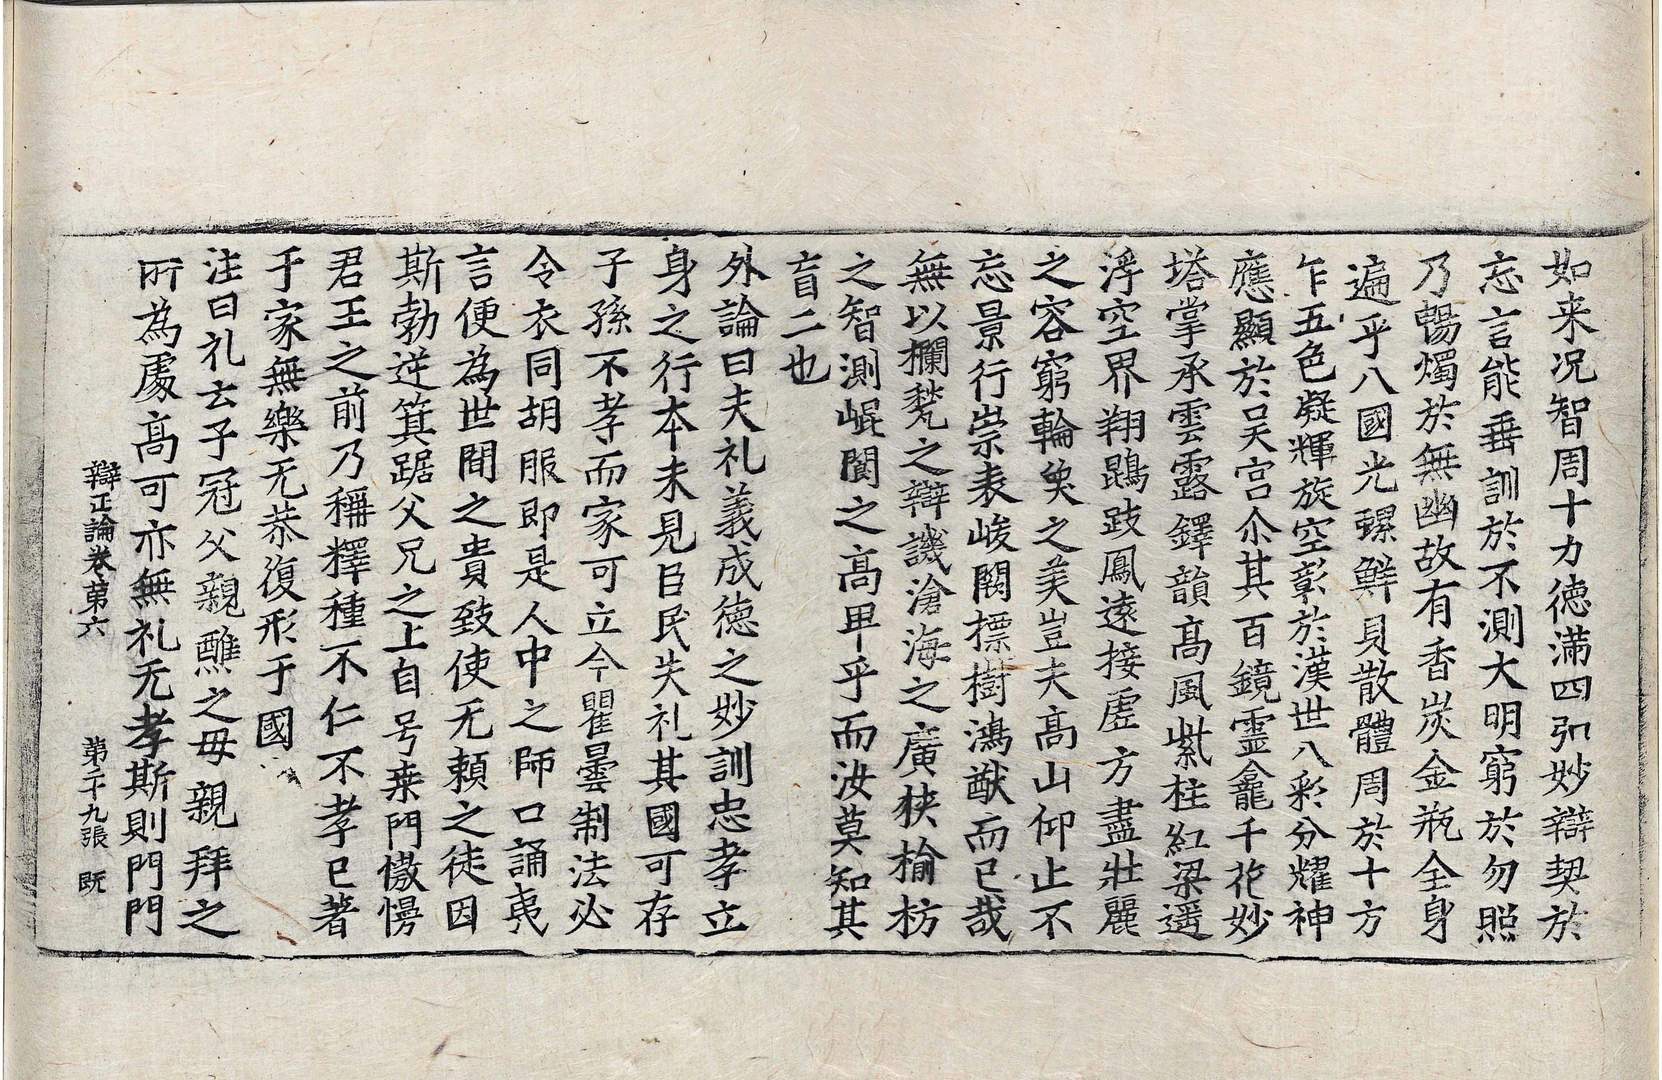 如来况智周十力德滿四弘妙辯契於
忘言能垂訓於不測大明窮於勿照
乃暢燭於無幽故有香炭金瓶全身
遍乎八國光螺鮮貝散體周於十方
乍五色凝輝旋空彰於漢世八彩分耀神
應顯於吴宫尒其百鏡靈龕千花妙
塔掌承雲露鐸韻髙風紫柱紅梁遥
浮空界翔鵾跂鳳遠接虛方盡壯麗
之容窮輪奐之美豈夫髙山仰止不
忘景行崇表峻闕摽樹鴻猷而已哉
無以欄甃之辯譏滄海之廣狹榆枋
之智測崐閬之髙甲乎而汝莫知其
盲二也
外論曰夫礼義成德之妙訓忠孝立
身之行本未見臣民失礼其國可存
子孫不孝而家可立今瞿曇制法必
令衣同胡服即是人中之師口誦夷
言便為世間之貴致使无頼之徒因
斯勃逆箕踞父兄之上自号桒門慠慢
君王之前乃稱釋種不仁不孝已著
于家無樂无恭復形于國
注曰礼云子冠父親醮之母親拜之
所為處髙可亦無礼无孝斯則門門
辯正論卷第六 第二十九張 既